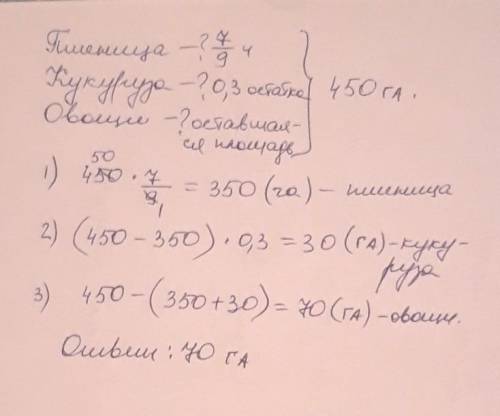 Пшеница – ? 7/9 ч
Кукуруза – ? 0,3 остатка
Овощи – ? оставшая-
ся площадь
} 450 га.
1) 450 · 7/9 = 350 (га) – пшеница
50
1
2) (450 – 350) · 0,3 = 30 (га) – куку-
руза
3) 450 – (350 + 30) = 70 (га) – овощи.
Ответ: 70 га